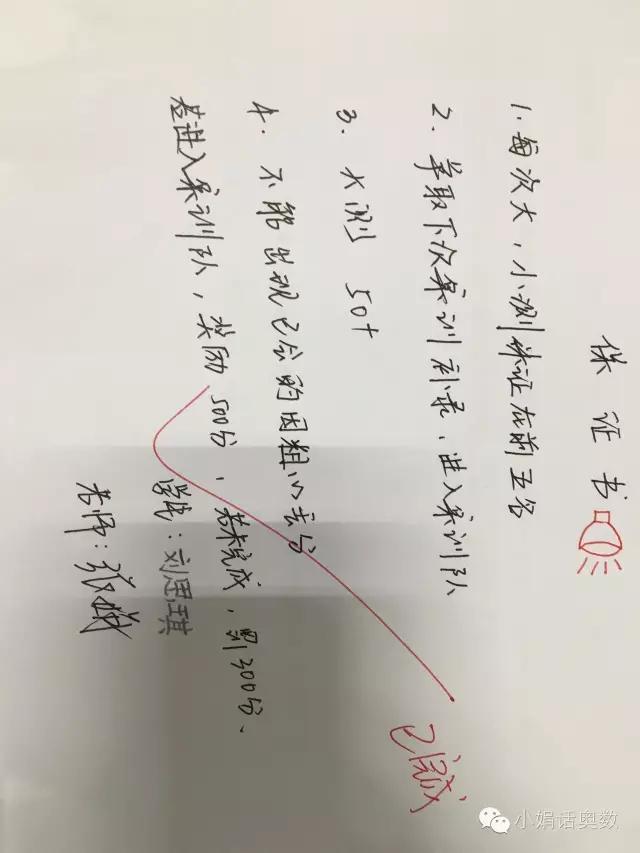 保证书
1. 每次大，小测保证在前五名
2. 争取下次集训补录，进入集训队
3. 大测 50+
4. 不能出现已会的因粗心丢分
若进入集训队，奖励500分，若未完成，罚300分.
学生：刘思琪
老师：张娟
已完成
小娟话奥数